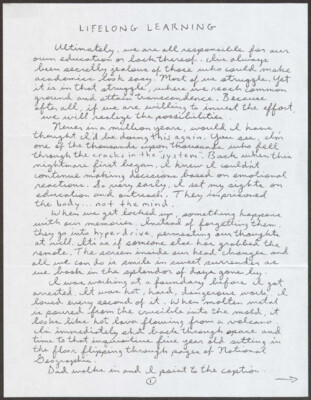 LIFELONG LEARNING
Ultimately, we are all responsible for our
own education or lack thereof. I've always
been secretly jealous of those who could make
academics look easy. Most of us struggle. Yet
it is in that struggle, where we reach common
ground and attain transcendence. Because
after all, if we are willing to invest the effort
we will realize the possibilities.
Never in a million years, would I have
thought I'd be doing this again. You see, I'm
one of the thousands upon thousands who fell
through the cracks in the "system". Back when this
nightmare first began, I knew I couldn't
continue making decisions based on emotional
reactions. So very early, I set my sights on
education and outreach. They imprisoned
the body... not the mind.
When we get locked up, something happens
with our memories. Instead of forgetting them,
they go into hyperdrive, permeating our thoughts
at will. It is as if someone else has grabbed the
remote. The screen inside our head changes and
all we can do is smile in sweet surrender as
we bask in the splendor of days gone by.
I was working at a foundry before I got
arrested. It was hot, hard, dangerous work. I
loved every second of it. When molten metal
is poured from the crucible into the mold, it
looks like hot lava flowing from a volcano.
I'm immediately shot back through space and
time to that inquisitive five year old sitting on
the floor flipping through pages of National
Geographic.
Dad walks in and I point to the caption.
1